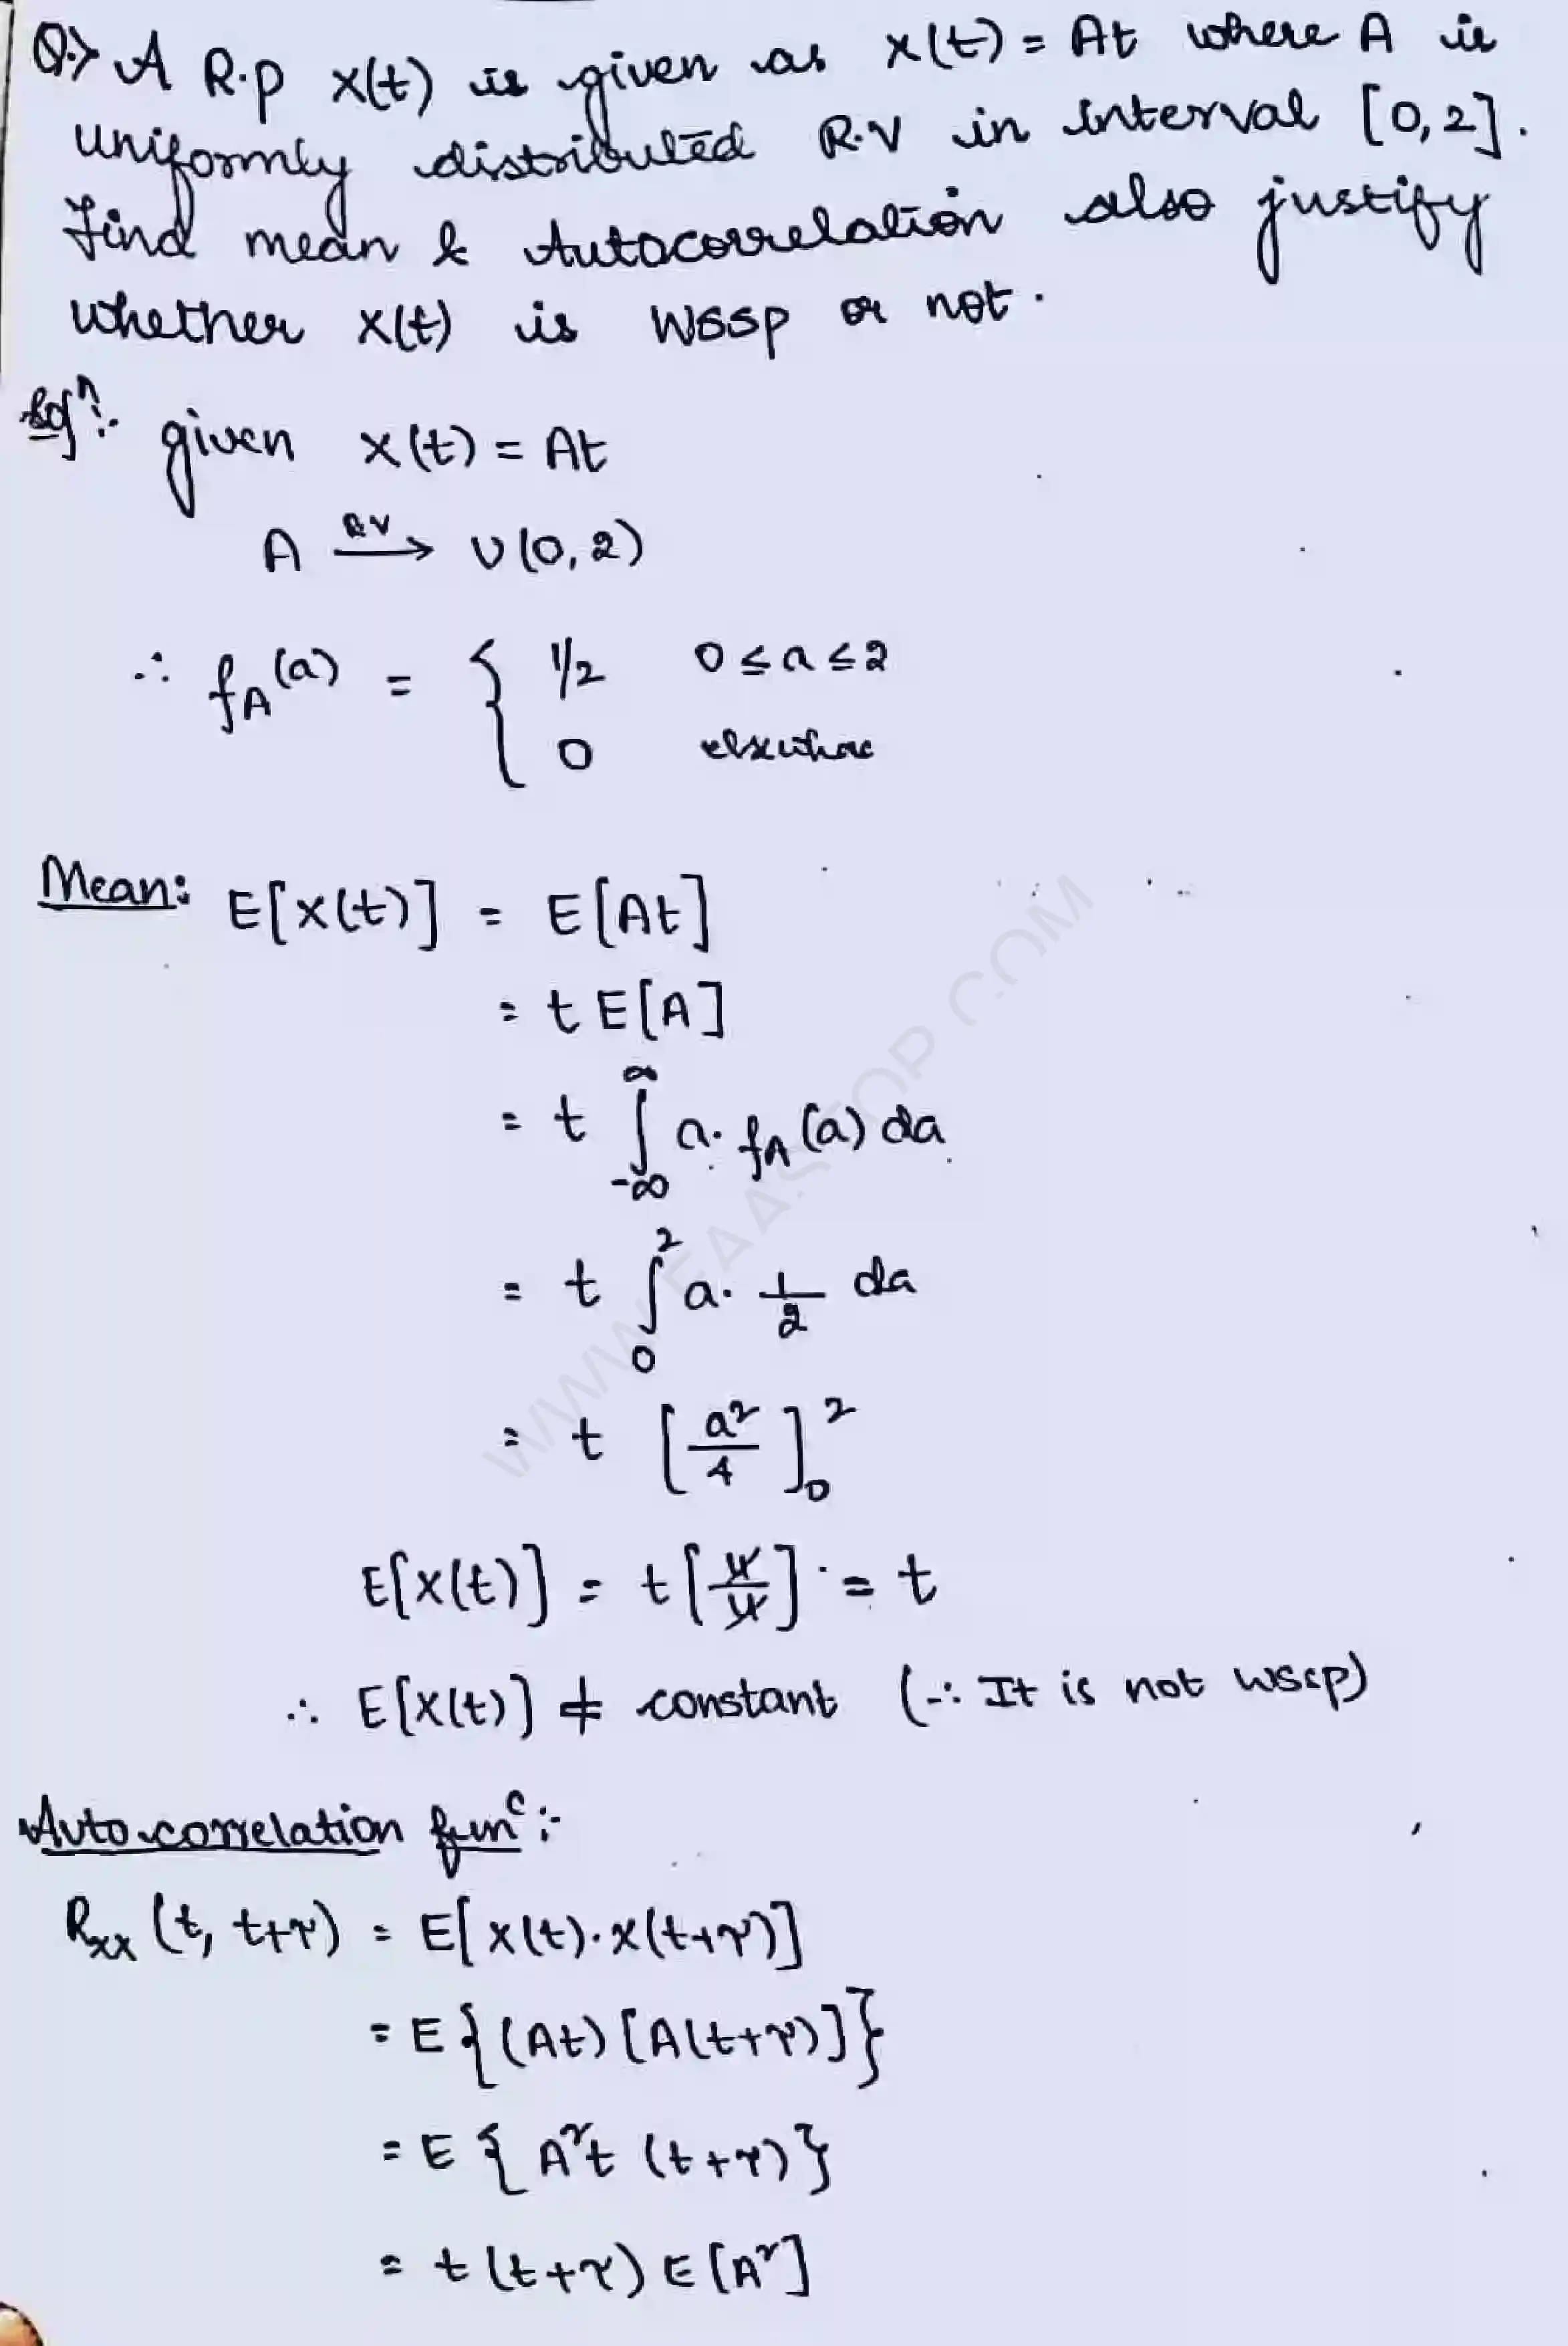 Q.> A R.P X(t) is given as X(t) = At where A is
uniformly distributed R.V in interval [0,2].
Find mean & Autocorrelation also justify
whether X(t) is WSSP or not.
Solⁿ:- given X(t) = At
A —R.V→ U(0,2)
∴ f_A(a) = { 1/2 0≤a≤2
0 elsewhere
Mean: E[X(t)] = E[At]
= t E[A]
= t ∫_{-∞}^{∞} a. f_A(a) da
= t ∫_0^2 a. 1/2 da
= t [a²/4]_0^2
E[X(t)] = t[4/4] = t
∴ E[X(t)] ≠ constant (∴ It is not WSSP)
Auto correlation funᶜ:-
R_XX (t, t+τ) = E[X(t).X(t+τ)]
= E{(At)[A(t+τ)]}
= E{A²t (t+τ)}
= t(t+τ) E[A²]
WWW.FAASTOP.COM